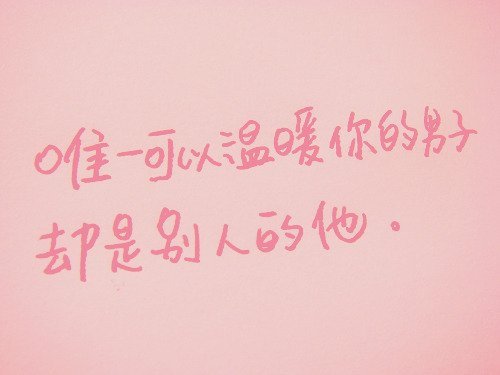 唯一可以温暖你的男子
却是别人的他。